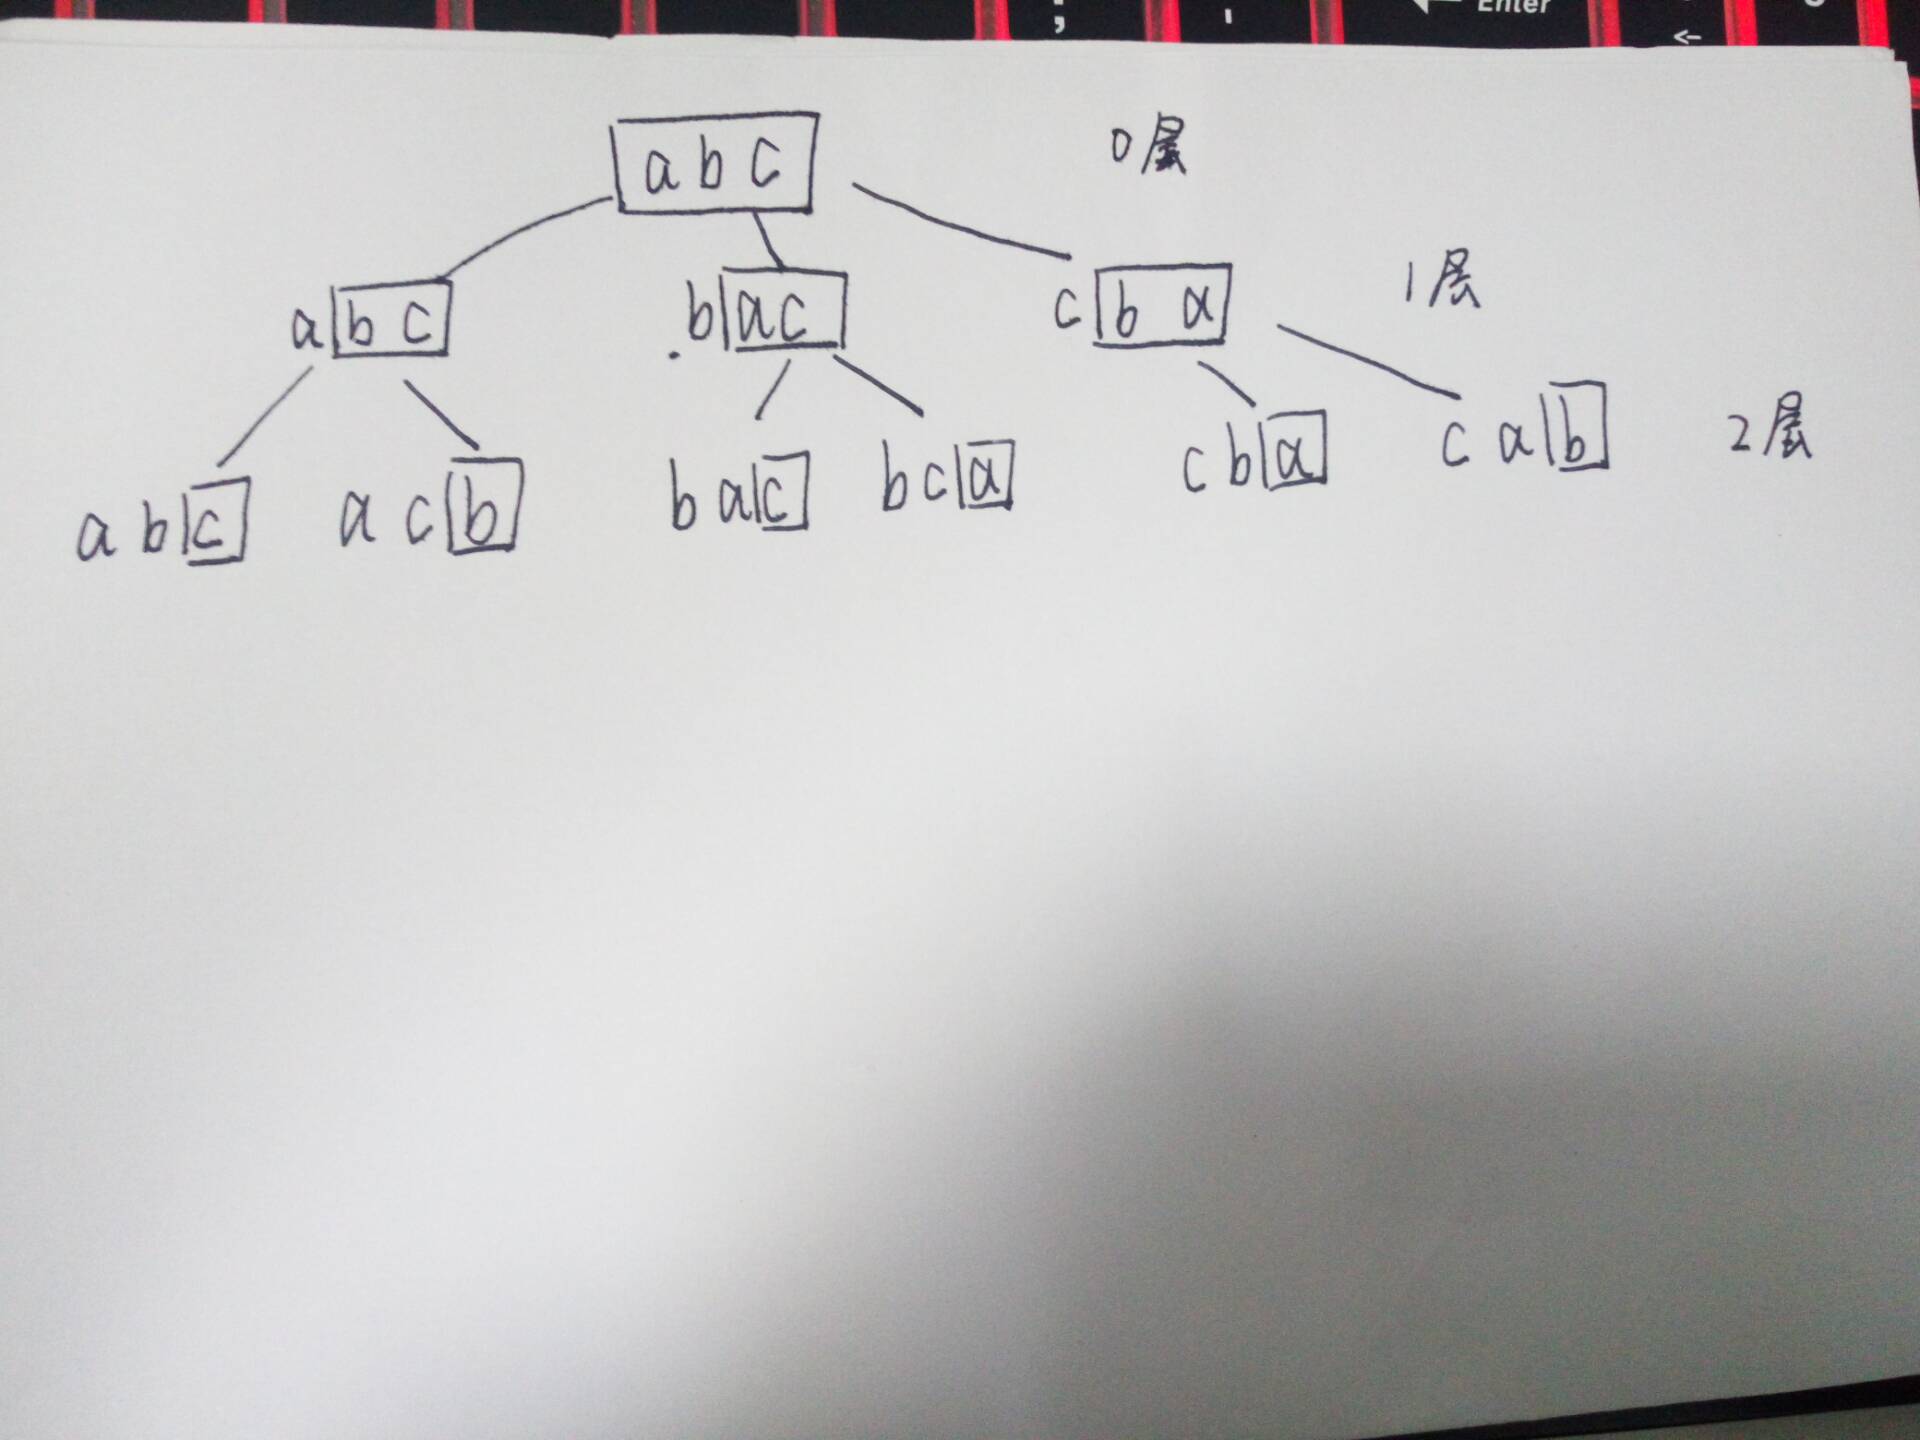 ; ' ← Enter ←
a b c 0层
a b c b a c c b a 1层
a b c a c b b a c b c a c b a c a b 2层